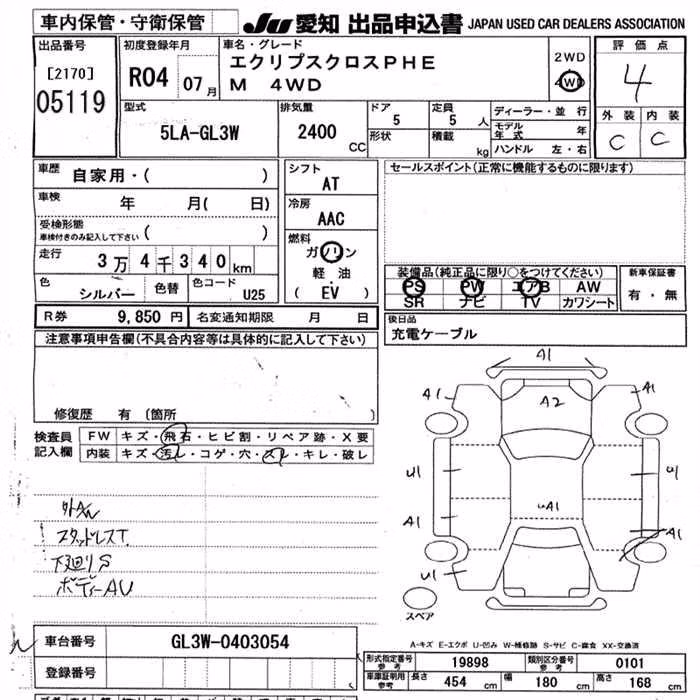 車内保管・守衛保管
JU 愛知 出品申込書 JAPAN USED CAR DEALERS ASSOCIATION
出品番号
[2170]
05119
初度登録年月
R04 07月
車名・グレード
エクリプスクロスPHE
M 4WD
2WD
4WD
評価点
4
外装 内装
C C
型式
5LA-GL3W
排気量
2400
CC
ドア
5
形状
定員
5 人
積載
kg
ディーラー・並行
モデル年式 年
ハンドル 左・右
車歴
自家用・( )
車検
年 月( 日)
受検形態
車検付きのみ記入して下さい ( )
走行
3万4千340km
色
シルバー
色替
色コード
U25
シフト
AT
冷房
AAC
燃料
ガソリン
軽油
( EV )
セールスポイント(正常に機能するものに限ります)
装備品(純正品に限り○をつけてください)
PS PW エアB AW
SR ナビ TV カワシート
新車保証書
有・無
R券 9,850円 名変通知期限 月 日
後日品
充電ケーブル
注意事項申告欄(不具合内容等は具体的に記入して下さい)
修復歴 有 (箇所
検査員
記入欄
FW キズ・飛石・ヒビ割・リペア跡・X要
内装 キズ・汚レ・コゲ・穴・スレ・キレ・破レ
スタッドレスT
下廻りS
ボディーAU
A1
A1
A2
A1
U1
U1
UA1
A1
A1
U1
スペア
A-キズ E-エクボ U-凹み W-補修跡 S-サビ C-腐食 XX-交換済
車台番号
GL3W-0403054
登録番号
形式指定番号 参考 19898 類別区分番号 参考 0101
車庫証明用 参考 長さ 454 cm 幅 180 cm 高さ 168 cm